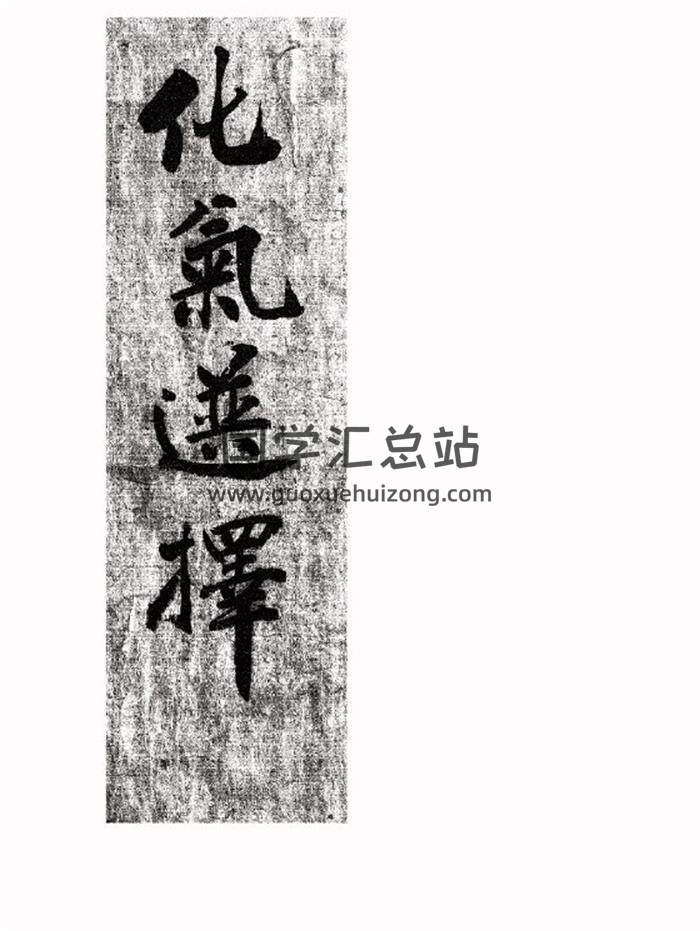 化氣選擇
国学汇总站
www.guoxuehuizong.com